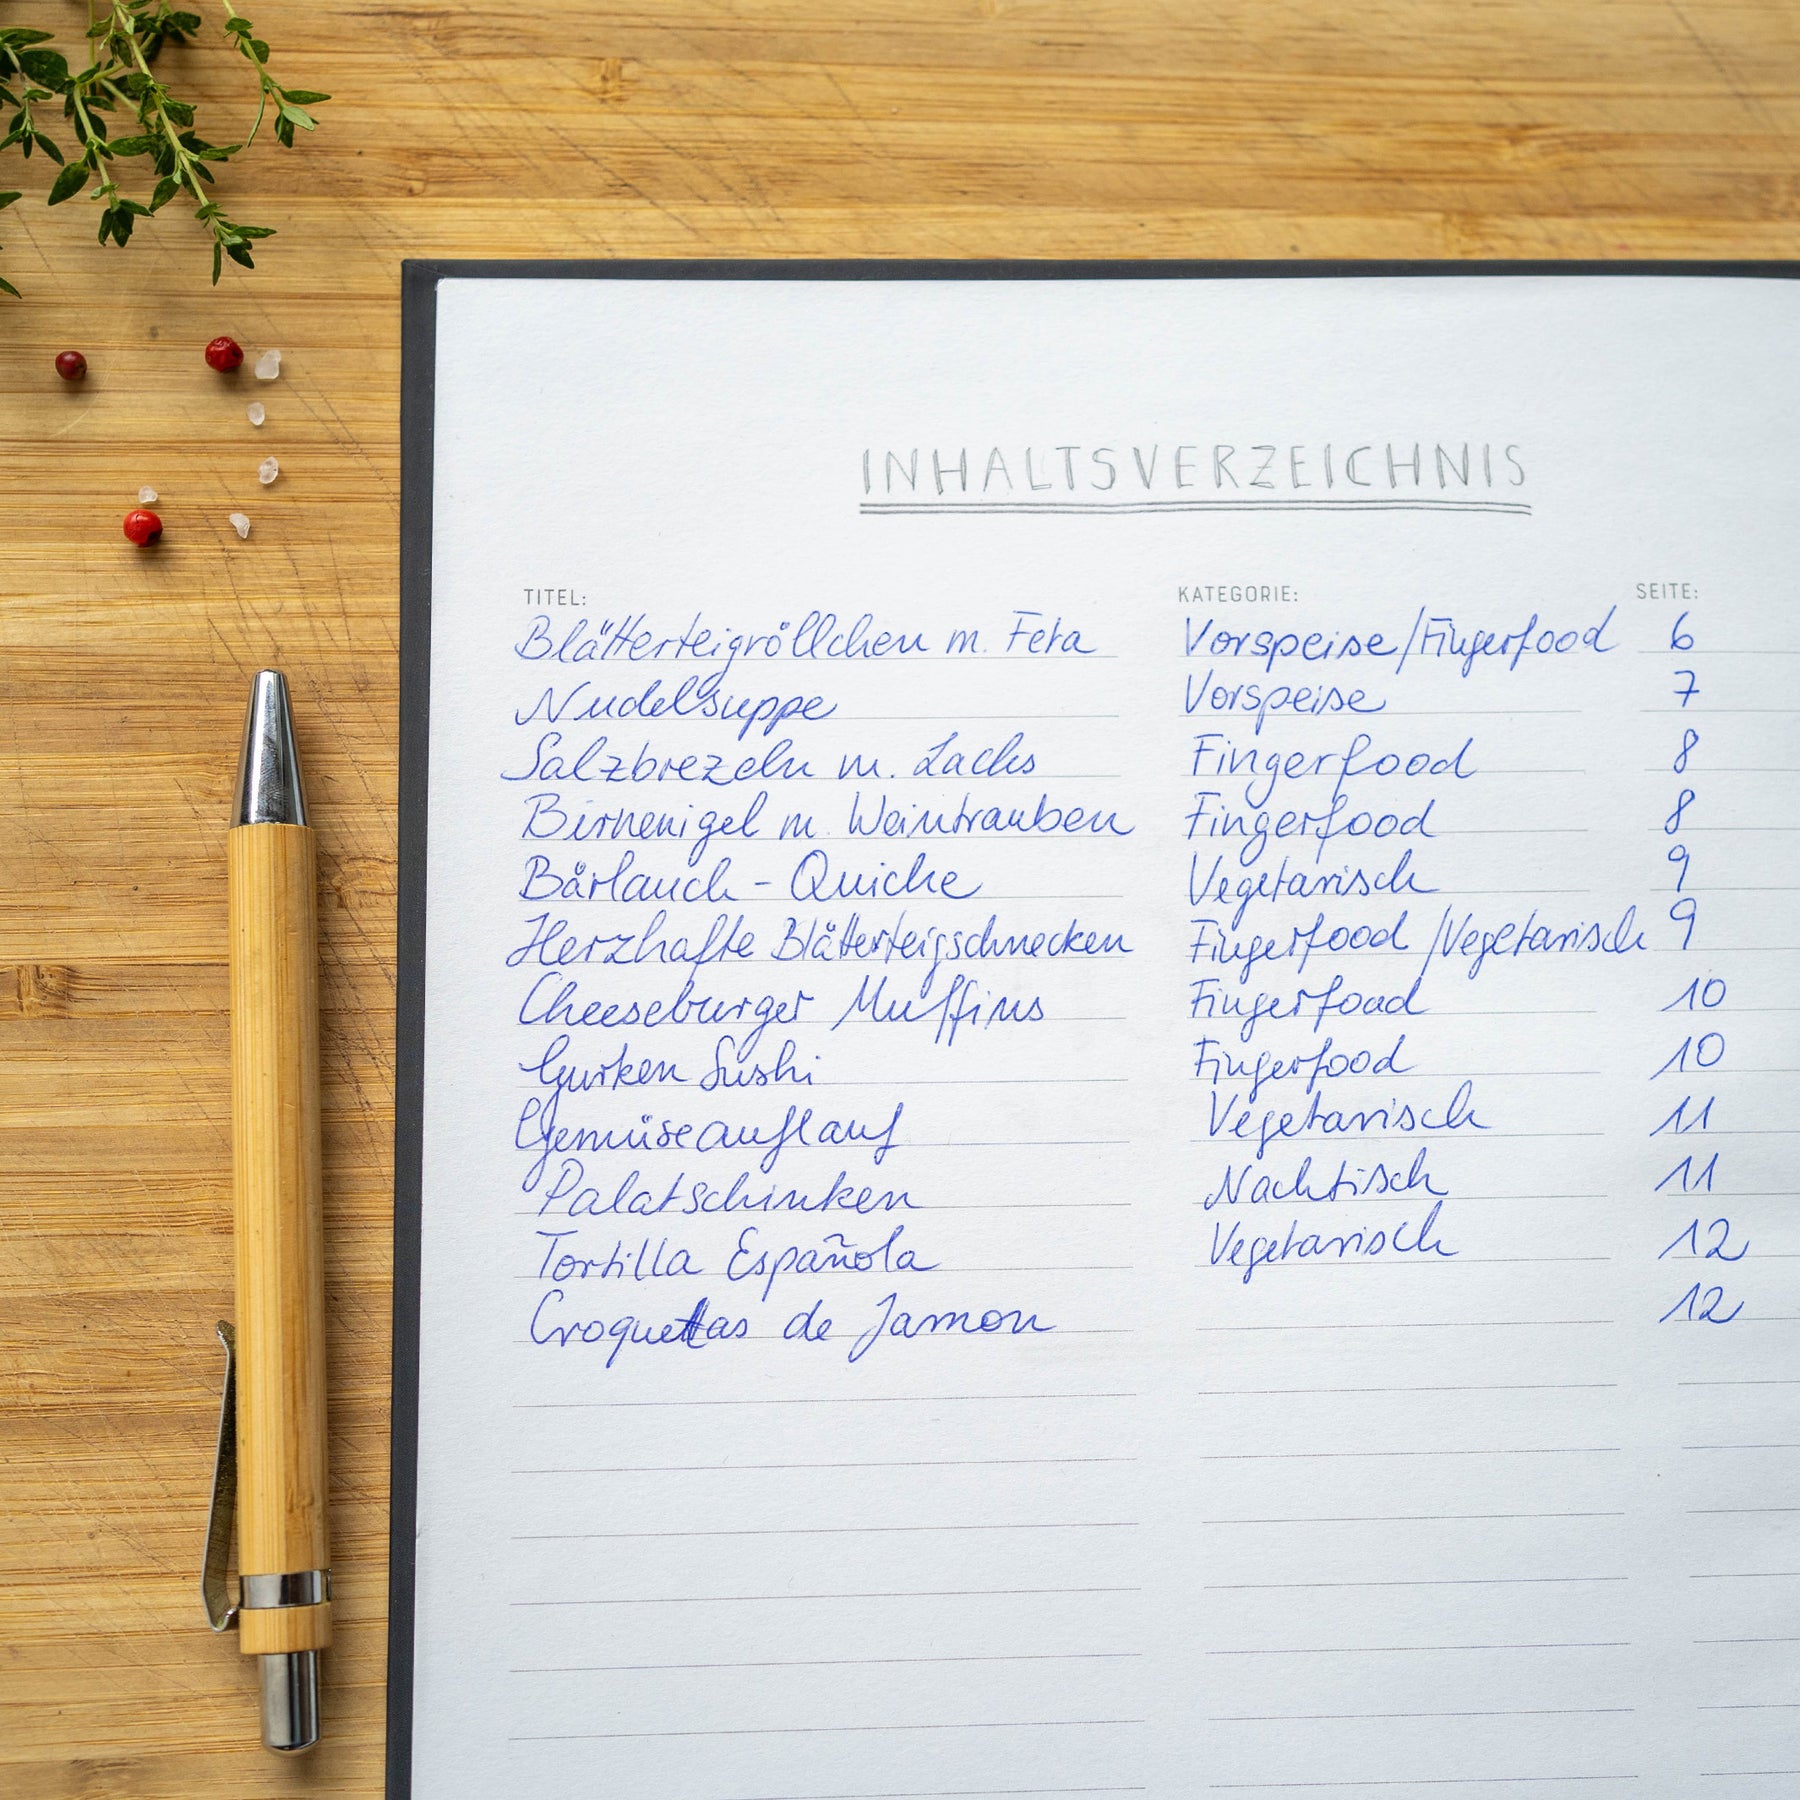 INHALTSVERZEICHNIS
TITEL: KATEGORIE: SEITE:
Blätterteigröllchen m. Feta Vorspeise/Fingerfood 6
Nudelsuppe Vorspeise 7
Salzbrezeln m. Lachs Fingerfood 8
Birnenigel m. Weintrauben Fingerfood 8
Bärlauch - Quiche Vegetarisch 9
Herzhafte Blätterteigschnecken Fingerfood /Vegetarisch 9
Cheeseburger Muffins Fingerfood 10
Gurken Sushi Fingerfood 10
Gemüseauflauf Vegetarisch 11
Palatschinken Nachtisch 11
Tortilla Española Vegetarisch 12
Croquettas de Jamon 12